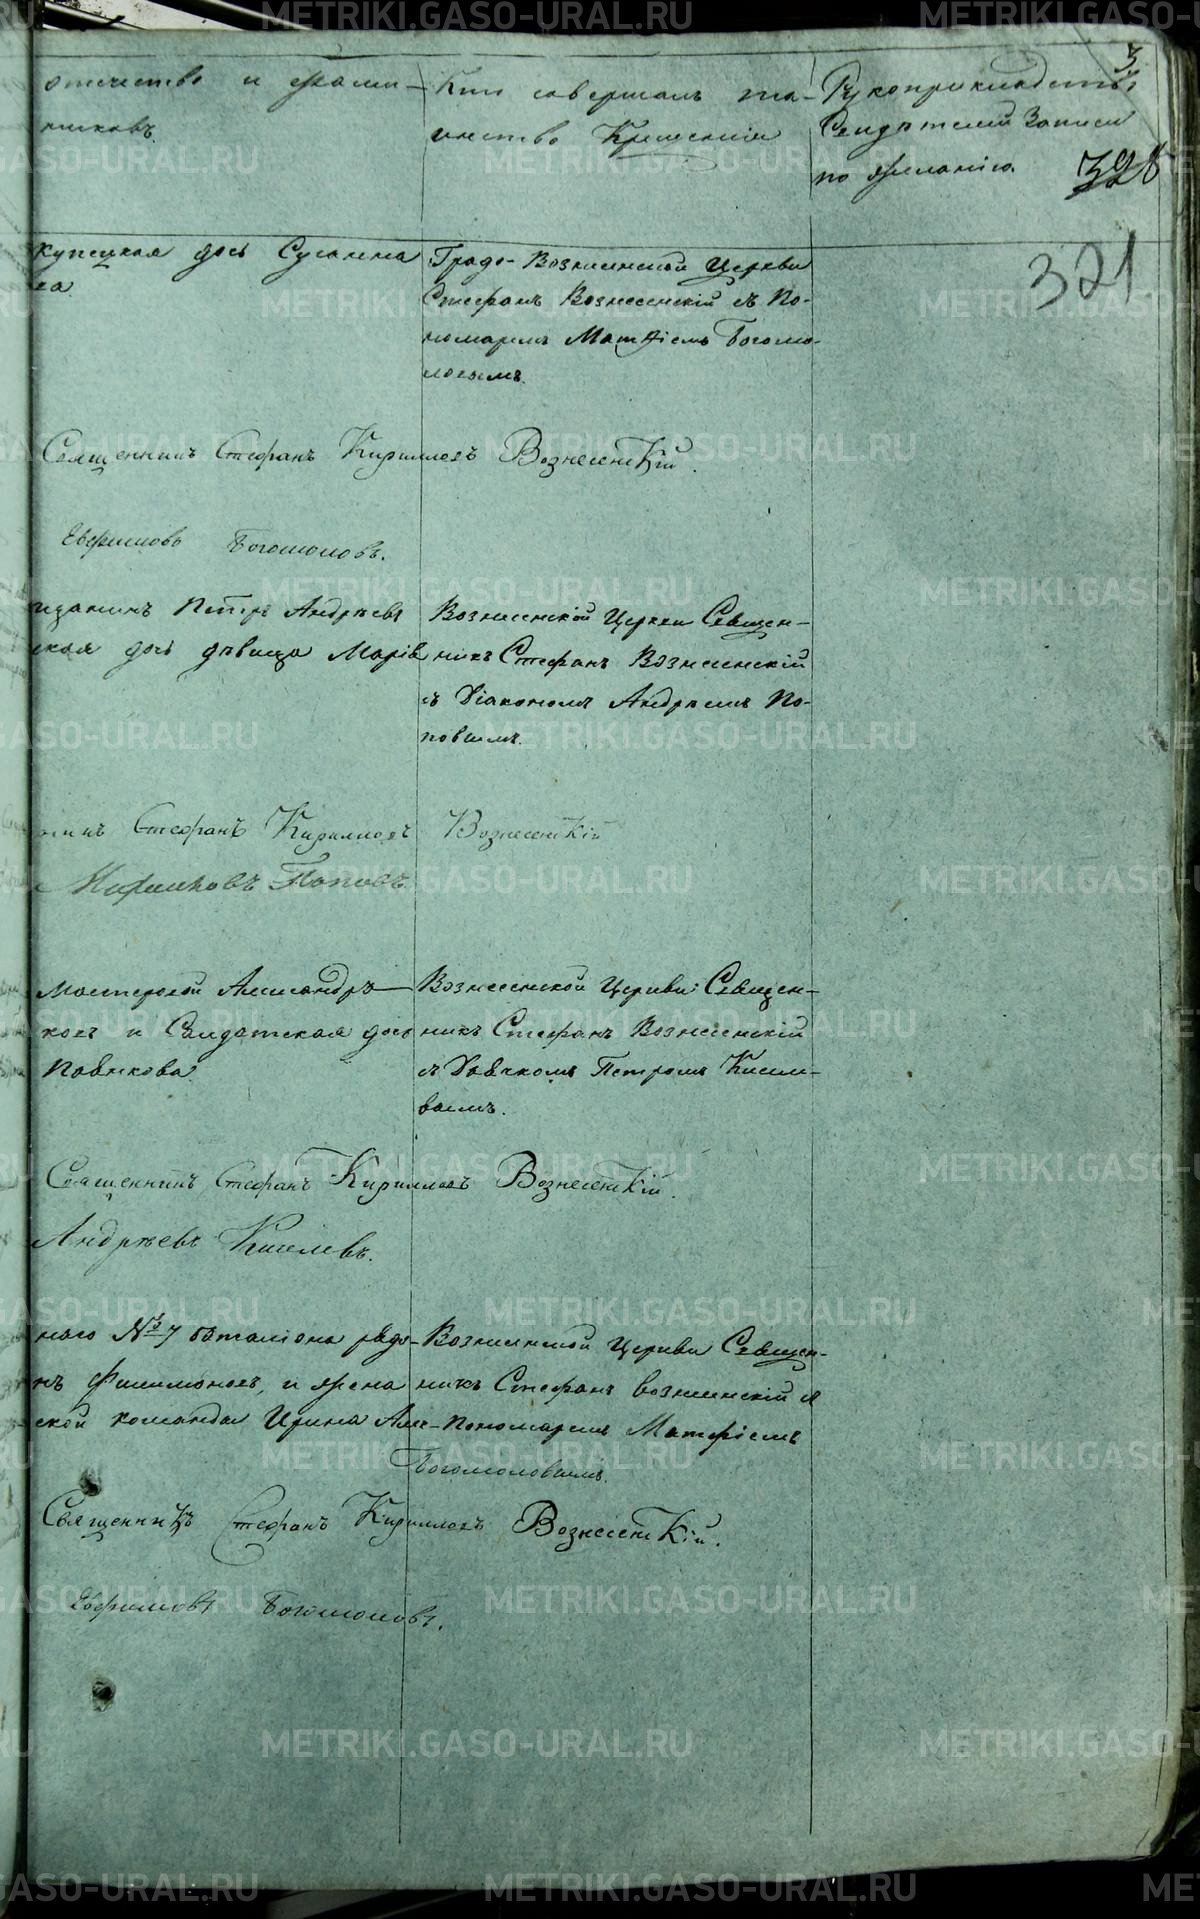 3
отчество и фами-
никовъ.
Кто совершалъ та-
инство Крещенія
Рукоприкладство
Свидѣтелей Записи
по желанію.
328
321
купецкая дочь Сусанна
ва
Градо-Вознесенской Церкви
Стефанъ Вознесенскій съ По-
номаремъ Матѳіемъ Богомо-
ловымъ.
Священникъ Стефанъ Кирилловъ Вознесенскій.
Евфимовъ Богомоловъ.
Петръ Андрѣевъ
ская дочь дѣвица Марія
Вознесенской Церкви Священ-
никъ Стефанъ Вознесенскій
съ Діакономъ Андреемъ По-
повымъ.
Стефанъ Кирилловъ Вознесенскій
Поповъ.
Мастерской Александръ
ковъ и Солдатская дочь
Вознесенской Церкви Священ-
никъ Стефанъ Вознесенскій
съ Дьячкомъ Петромъ Кисиле-
вымъ.
Священникъ Стефанъ Кирилловъ Вознесенскій.
Андрѣевъ Киселевъ.
наго №7 баталіона рядо-
нъ Филимоновъ, и жена
ской команды Ирина Але-
Вознесенской Церкви Священ-
никъ Стефанъ Вознесенскій съ
Пономаремъ Матфіемъ
Богомоловымъ.
Священникъ Стефанъ Кирилловъ Вознесенскій.
Евфимовъ Богомоловъ.
METRIKI.GASO-URAL.RU